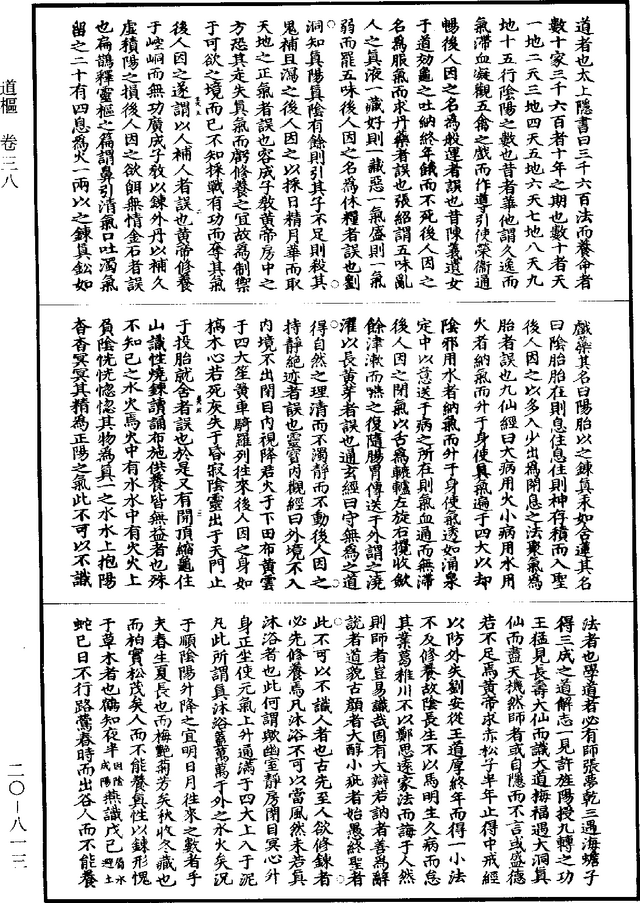 道者也太上隱書曰三千六百法而養命者
數十家三千六百者十年之期也數十者天
一地二天三地四天五地六天七地八天九
地十五行陰陽之數也昔者華佗謂久逸而
氣滯血凝觀五禽之戲而作導引使榮衛通
暢後人因之名為般運者誤也昔陳義遺女
于道効龜之吐納終年餓而不死後人因之
名為服氣而求丹藥者誤也張紹謂五味亂
人之真液一藏好則一藏惡一氣盛則一氣
弱而罷五味後人因之名為休糧者誤也劉
洞知真陽真陰有餘則引其子不足則殺其
鬼補且瀉之後人因之以採日精月華而取
天地之正氣者誤也容成子敎黃帝房中之
方恐其走失真氣而虧修養之宜故為制禦
于可欲之境而已不知採戰有功而奪其氣
後人因之遂謂以人補人者誤也黃帝修養
于崆峒而無功廣成子敎以鍊外丹以補久
虛積陽之損後人因之欲餌無情金石者誤
也扁鵲釋靈樞之篇謂鼻引清氣口吐濁氣
留之二十有四息為火一兩以之鍊真鈆如
戲藥其名曰陽胎以之鍊真汞如合蓮其名
曰陰胎胎在則息住息住則神存積而入聖
後人因之以多入少出為閉息之法聚氣為
胎者誤也九仙經曰大病用火小病用水用
火者納氣而升于身使真氣遍于四大以却
陰邪用水者納氣而升于身使氣透如涌泉
定中以意送于病之所在則氣血通而無滯
後人因之閉氣以古為轆轤左旋右攪收斂
餘津漱而嚥之復隨腸胃傳送于外謂之澆
灌以長黃芽者誤也通玄經曰守無為之道
得自然之理清而不濁靜而不動後人因之
持靜絶迹者誤也靈寳內觀經曰外境不入
內境不出閉目內視降君火于下田布黃雲
于四大笙黃車騎羅列往來後人因之身如
槁木心若死灰失于昏寂陰靈出于天門止
于投胎就舍者誤也於是又有開頂縮龜住
山識性燒鍊請誦布施供養皆無益者也殊
不知己之水火焉火中有水水中有火火上
負陰恍恍惚惚其物為真一之水水上抱陽
杳杳冥冥其精為正陽之氣此不可以不識
法者也學道者必有師張夢乾三遇海蟾子
得三成之道解志一見許旌陽授九轉之功
王猛見長壽大仙而識大道梅福遇大洞真
仙而盡天機然師者或自隱而不言或盛德
若不足焉黃帝求赤松子半年止得中戒經
以防外失劉安從王道厚終年而得一小法
不及修養故陰長生不以馬明生久病而怠
其業葛稚川不以鄭思遠家法而誨于人然
則師者豈易識哉固有大辯若訥者善為辭
說者道貌古顏者大醇小疵者始愚終聖者
此不可以不識人者也古先至人欲修鍊者
必先修養焉凡沐浴不可以當風然未若真
沐浴者也此何謂歟幽室靜房閉目冥心升
身正坐使元氣上升通滿于四大上入于泥
凡此所謂真沐浴蓋萬萬于外之水火矣況
于順陰陽升降之宜明日月往來之數者乎
夫春生夏長也而梅艷菊芳矣秋收冬藏也
而柏實松茂矣人而不能養真性以鍊形愧
于草木者也鶴知夜半因陰成陽燕識戊己屬水避土
蛇巳日不行路鶯春時而出谷人而不能養
道樞　卷三八
二〇—八一三